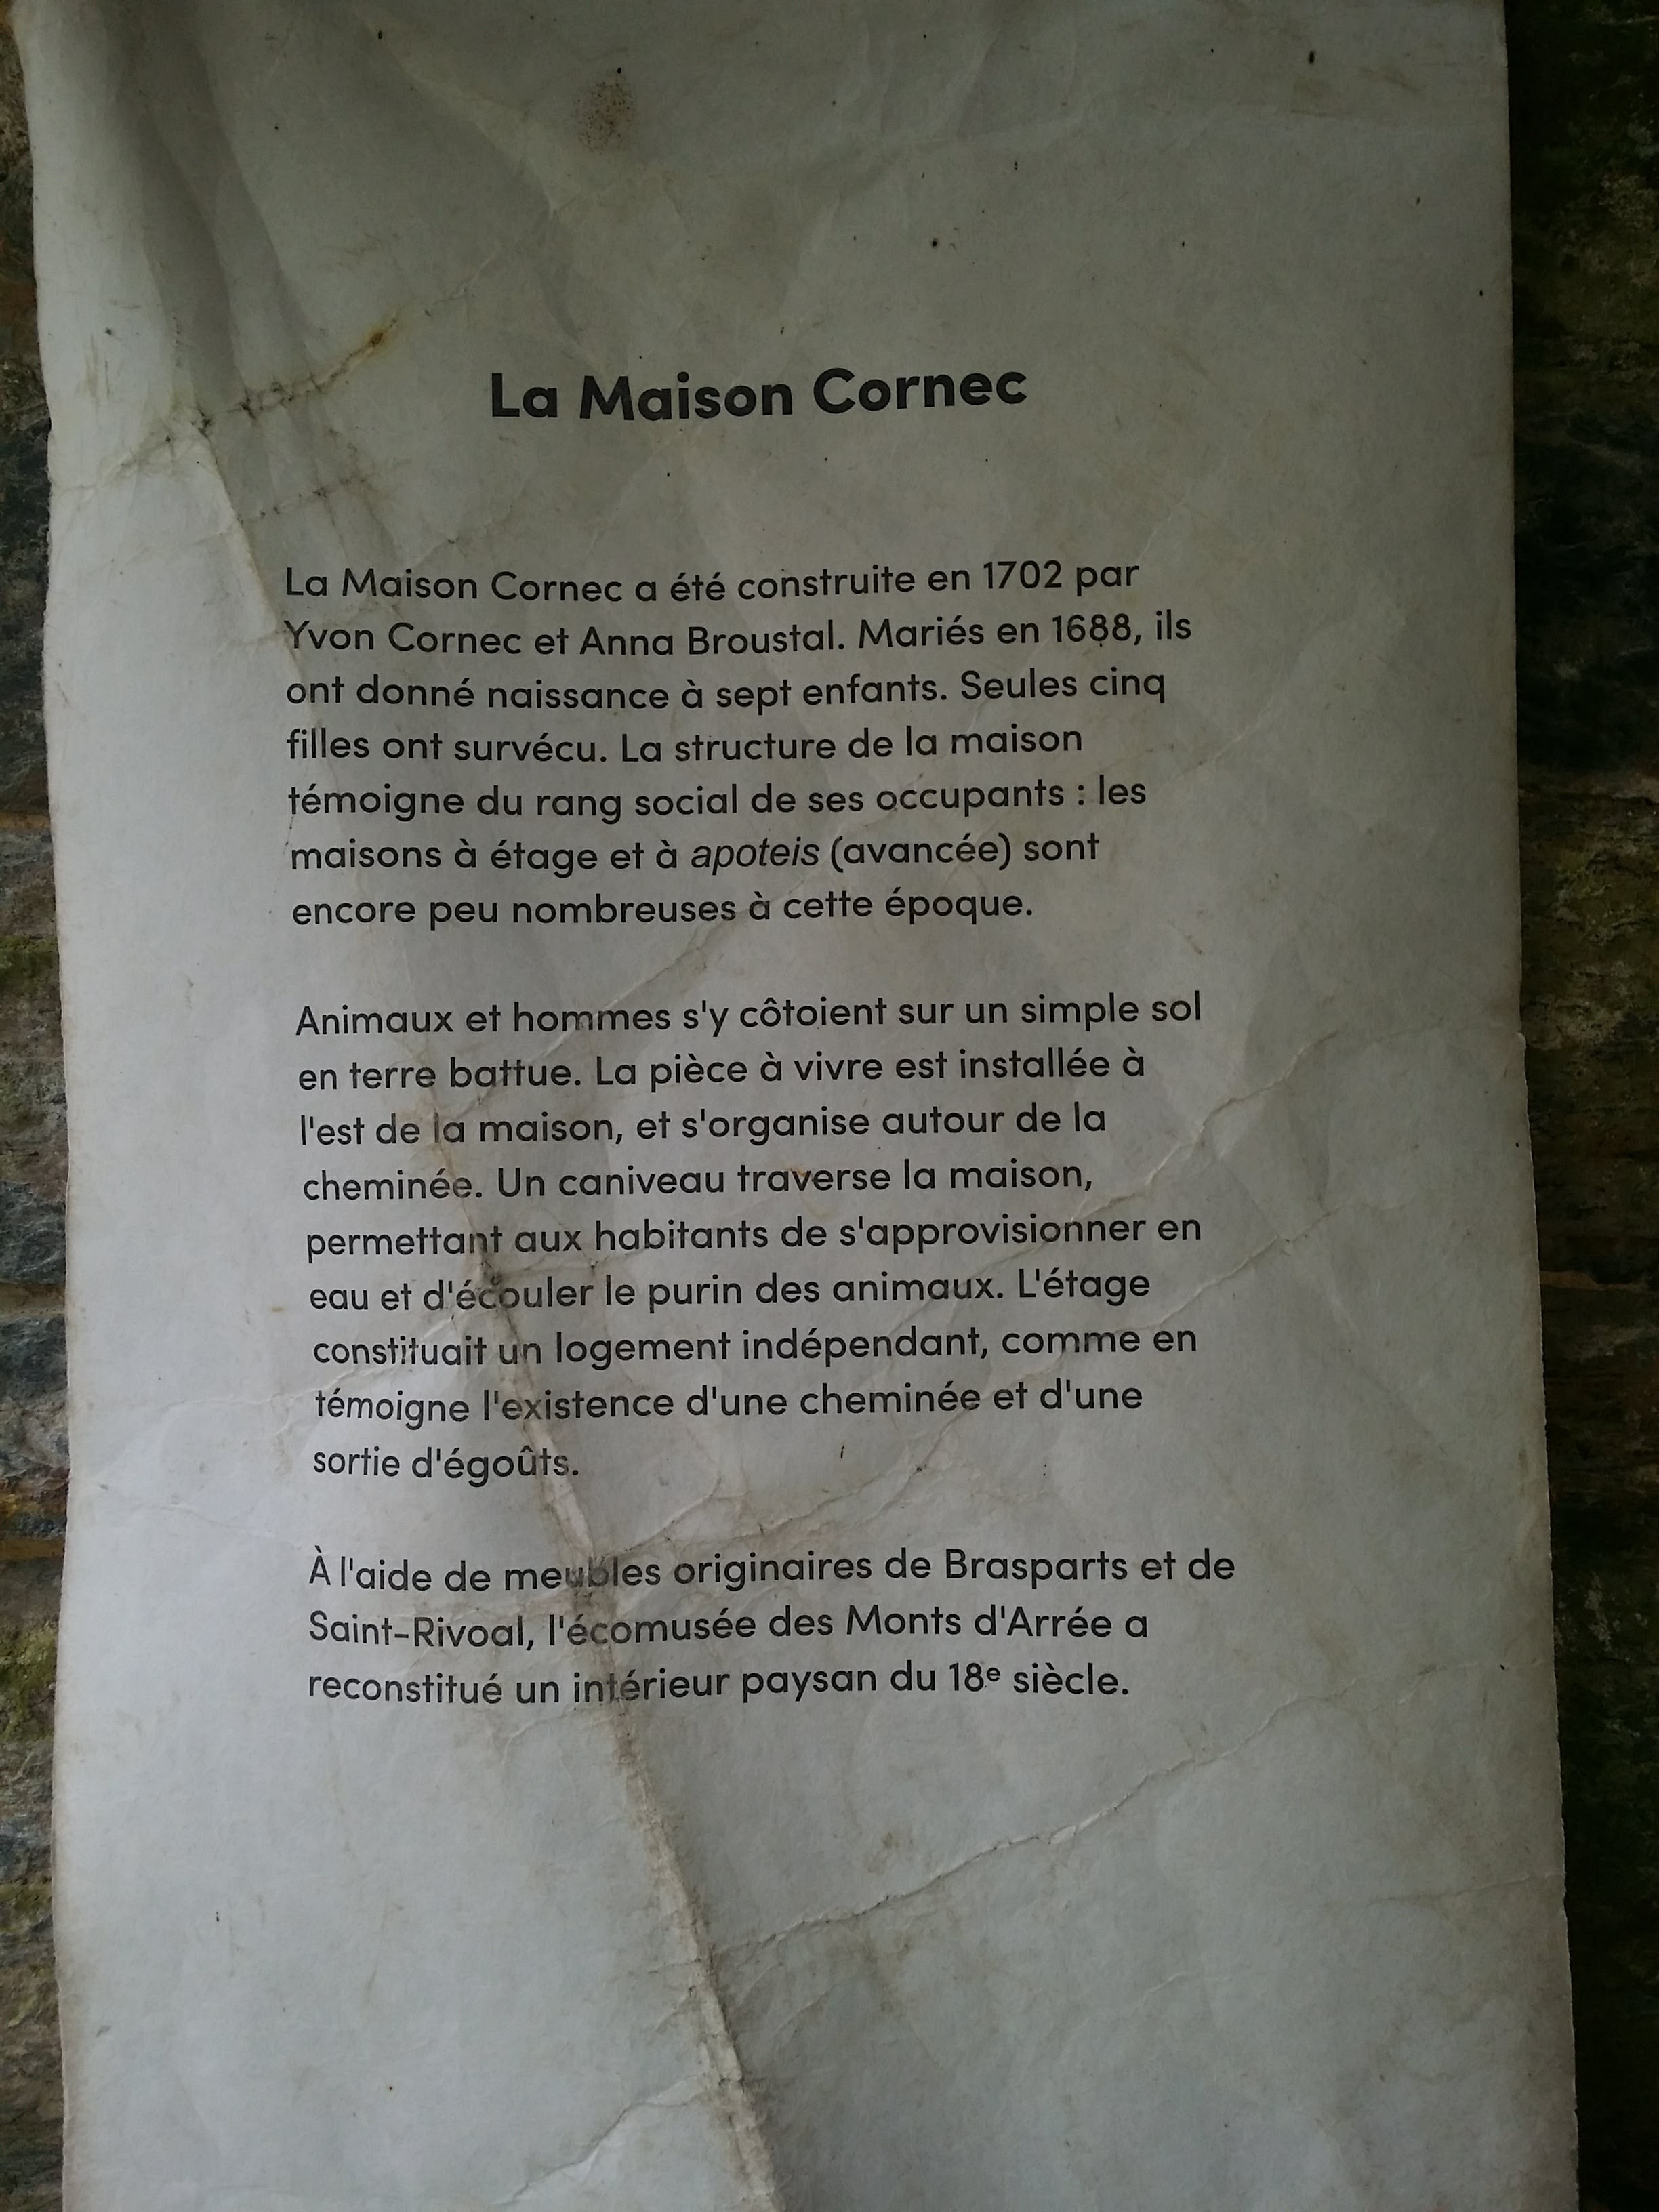 La Maison Cornec
La Maison Cornec a été construite en 1702 par
Yvon Cornec et Anna Broustal. Mariés en 1688, ils
ont donné naissance à sept enfants. Seules cinq
filles ont survécu. La structure de la maison
témoigne du rang social de ses occupants : les
maisons à étage et à apoteis (avancée) sont
encore peu nombreuses à cette époque.
Animaux et hommes s'y côtoient sur un simple sol
en terre battue. La pièce à vivre est installée à
l'est de la maison, et s'organise autour de la
cheminée. Un caniveau traverse la maison,
permettant aux habitants de s'approvisionner en
eau et d'écouler le purin des animaux. L'étage
constituait un logement indépendant, comme en
témoigne l'existence d'une cheminée et d'une
sortie d'égoûts.
À l'aide de meubles originaires de Brasparts et de
Saint-Rivoal, l'écomusée des Monts d'Arrée a
reconstitué un intérieur paysan du 18e siècle.